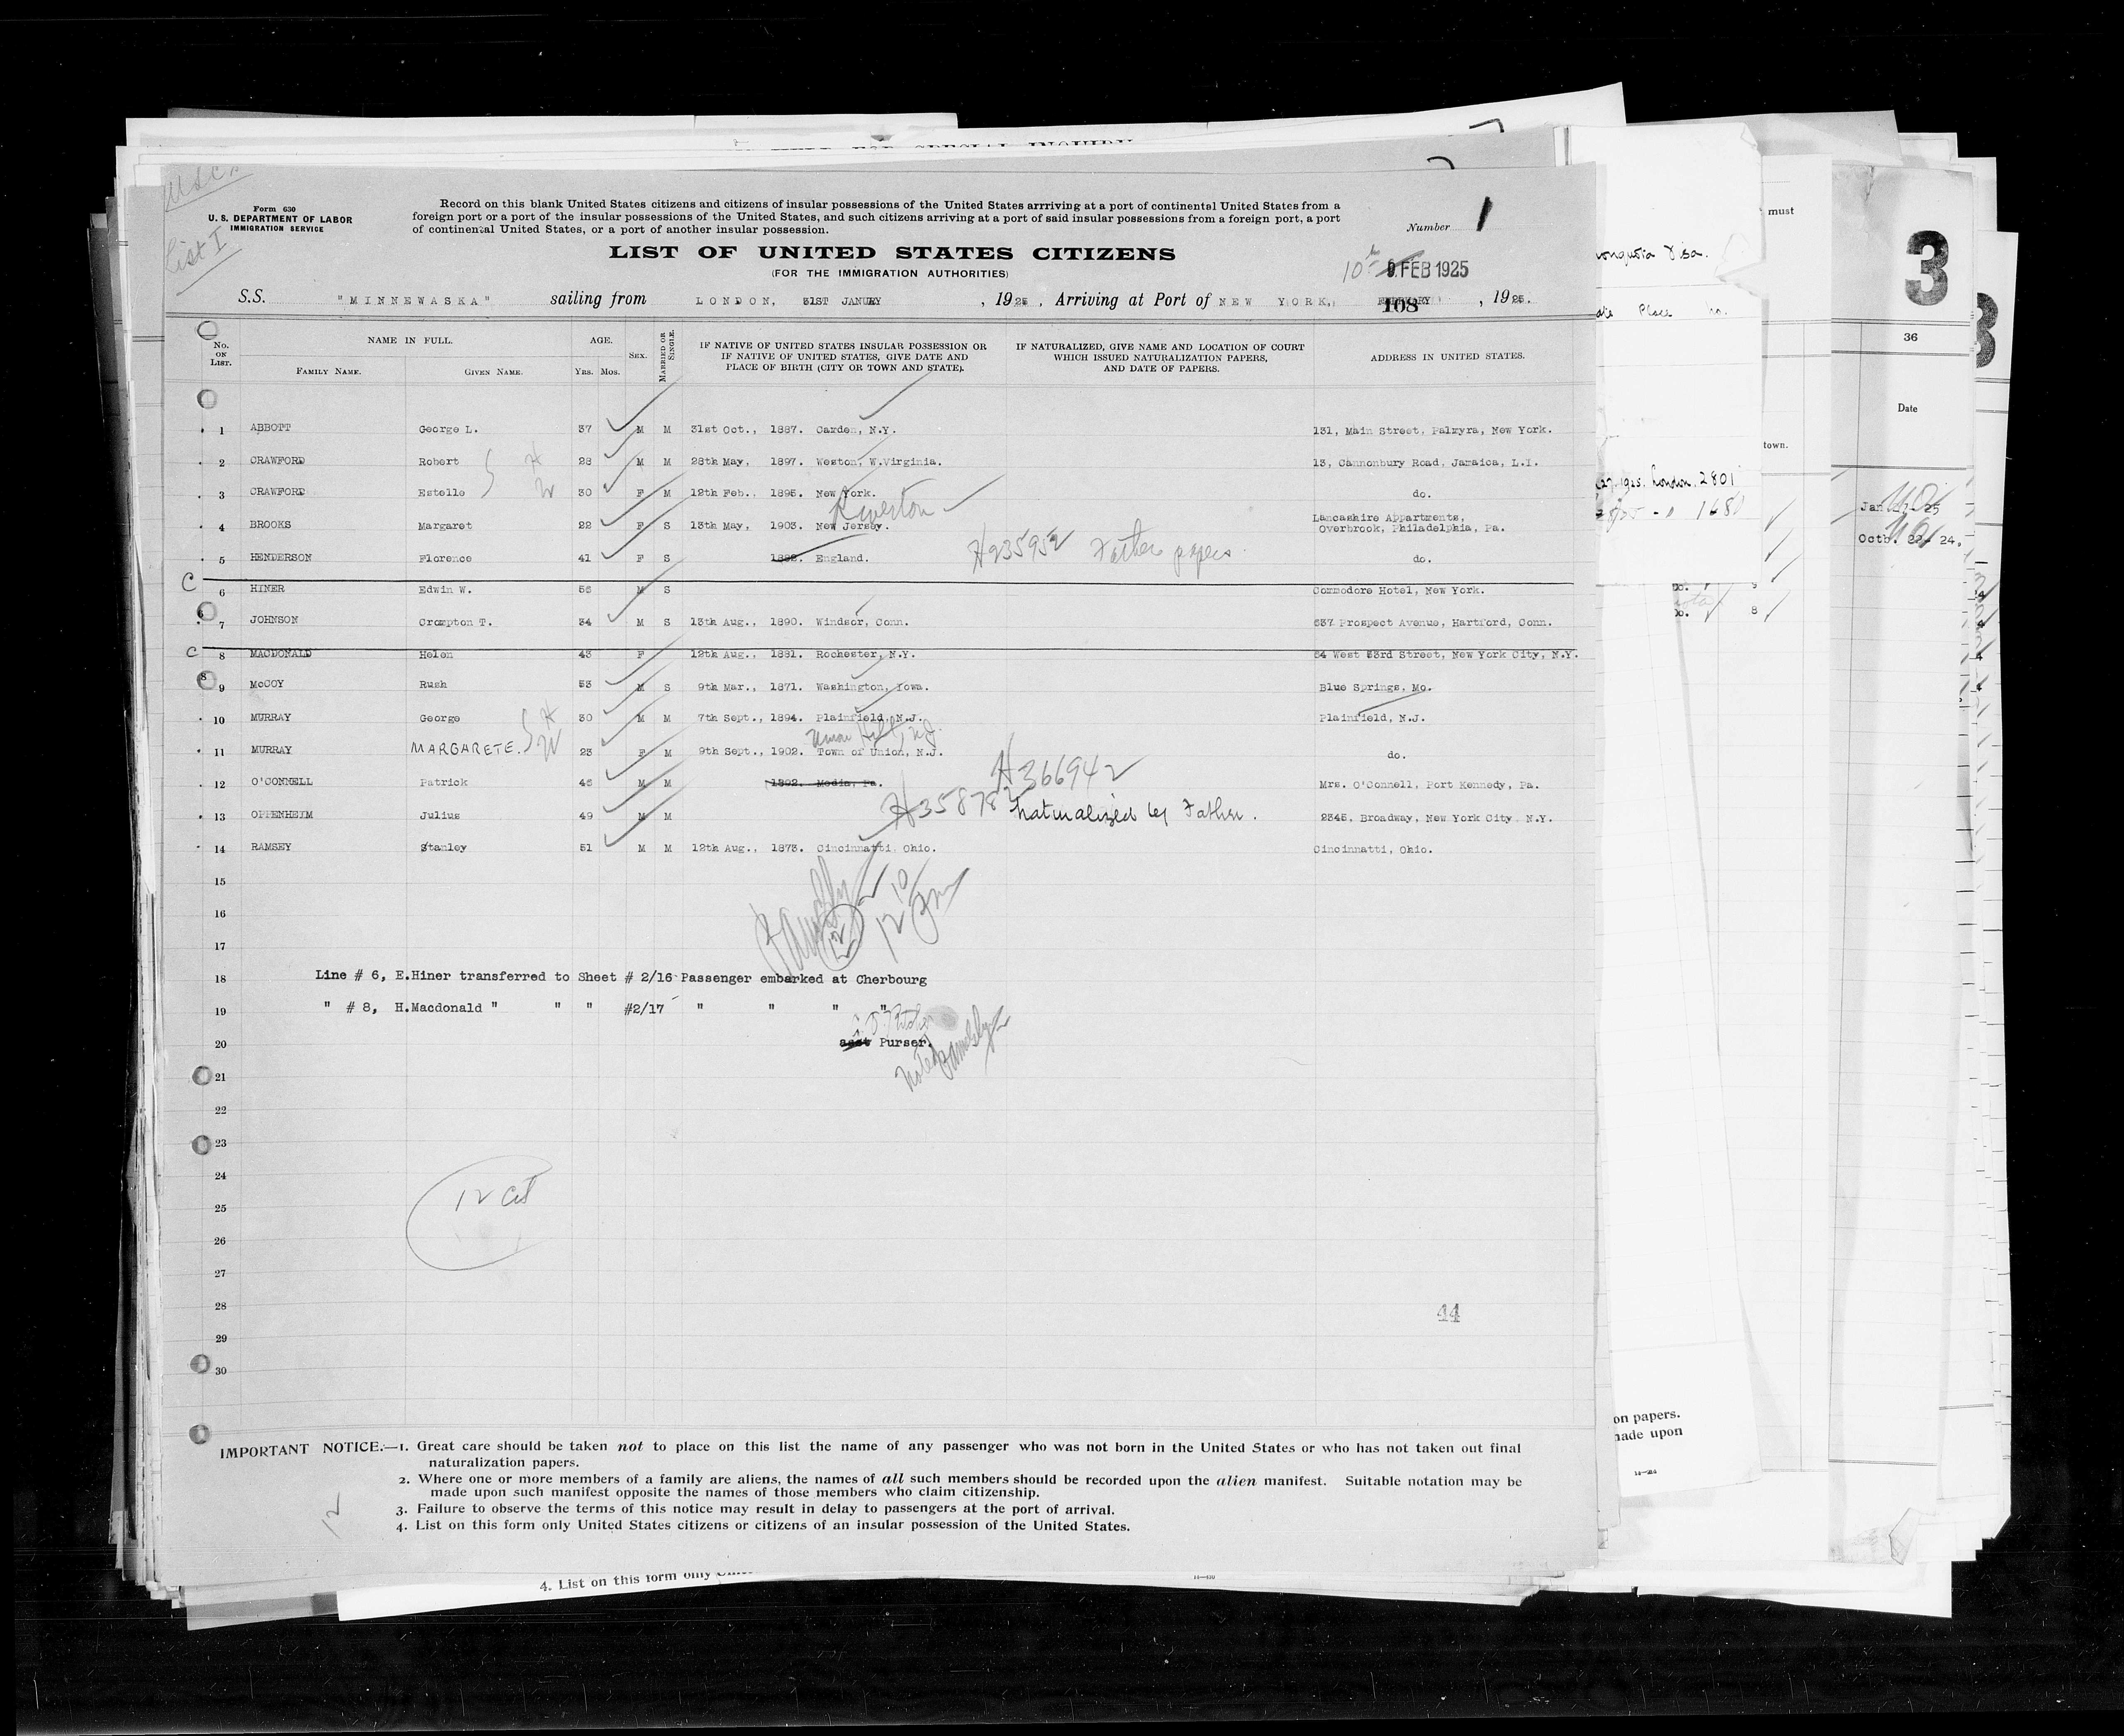 List I
Form 630
U. S. DEPARTMENT OF LABOR
IMMIGRATION SERVICE
Record on this blank United States citizens and citizens of insular possessions of the United States arrriving at a port of continental United States from a
foreign port or a port of the insular possessions of the United States, and such citizens arriving at a port of said insular possessions from a foreign port, a port
of continental United States, or a port of another insular possession.
Number 1
LIST OF UNITED STATES CITIZENS
(FOR THE IMMIGRATION AUTHORITIES)
10th 9 FEB 1925
S.S. "MINNEWASKA" sailing from LONDON, 31ST JANUARY, 1925, Arriving at Port of NEW YORK, FEBRUARY, 1925.
108
No. ON LIST. NAME IN FULL. FAMILY NAME. GIVEN NAME. AGE. Yrs. Mos. SEX. MARRIED OR SINGLE. IF NATIVE OF UNITED STATES INSULAR POSSESSION OR IF NATIVE OF UNITED STATES, GIVE DATE AND PLACE OF BIRTH (CITY OR TOWN AND STATE). IF NATURALIZED, GIVE NAME AND LOCATION OF COURT WHICH ISSUED NATURALIZATION PAPERS, AND DATE OF PAPERS. ADDRESS IN UNITED STATES.
1 ABBOTT George L. 37 M M 31st Oct., 1887. Camden, N.Y. 131, Main Street, Palmyra, New York.
2 CRAWFORD Robert H 28 M M 28th May, 1897. Weston, W.Virginia. 13, Cannonbury Road, Jamaica, L.I.
3 CRAWFORD Estelle W 30 F M 12th Feb., 1895. New York. do.
Riverton
4 BROOKS Margaret 22 F S 13th May, 1903. New Jersey. Lancashire Appartments, Overbrook, Philadelphia, Pa.
5 HENDERSON Florence 41 F S England. H235952 Father papers. do.
C 6 HINER Edwin W. 56 M S Commodore Hotel, New York.
6 7 JOHNSON Crompton T. 34 M S 13th Aug., 1890. Windsor, Conn. 637 Prospect Avenue, Hartford, Conn.
C 8 MACDONALD Helen 43 F 12th Aug., 1881. Rochester, N.Y. 54 West 53rd Street, New York City, N.Y.
8 9 McCOY Rush 53 M S 9th Mar., 1871. Washington, Iowa. Blue Springs, Mo.
10 MURRAY George H 30 M M 7th Sept., 1894. Plainfield, N.J. Plainfield, N.J.
Union Hill, N.J.
11 MURRAY MARGARETE. W 23 F M 9th Sept., 1902. Town of Union, N.J. do.
12 O'CONNELL Patrick 46 M M 1892. Media, Pa. H366942 Mrs. O'Connell, Port Kennedy, Pa.
13 OPPENHEIM Julius 49 M M H358782 naturalized by Father. 2345, Broadway, New York City N.Y.
14 RAMSEY Stanley 51 M M 12th Aug., 1873. Cincinnatti Ohio. Cincinnatti, Ohio.
15
16
12 10
12
17
18 Line # 6, E.Hiner transferred to Sheet # 2/16 Passenger embarked at Cherbourg
19 " # 8, H.Macdonald " " " #2/17 " " " "
20 Purser.
Noted
21
22
23
24
25 12 Cit
26
27
28 44
29
30
IMPORTANT NOTICE.—1. Great care should be taken not to place on this list the name of any passenger who was not born in the United States or who has not taken out final
naturalization papers.
2. Where one or more members of a family are aliens, the names of all such members should be recorded upon the alien manifest. Suitable notation may be
made upon such manifest opposite the names of those members who claim citizenship.
3. Failure to observe the terms of this notice may result in delay to passengers at the port of arrival.
4. List on this form only United States citizens or citizens of an insular possession of the United States.
12
4. List on this form only
must
Visa.
Place No.
town.
1925. London. 2801
1680
8
on papers.
made upon
3
36
Date
Jan 25
Octb. 22 24.
3